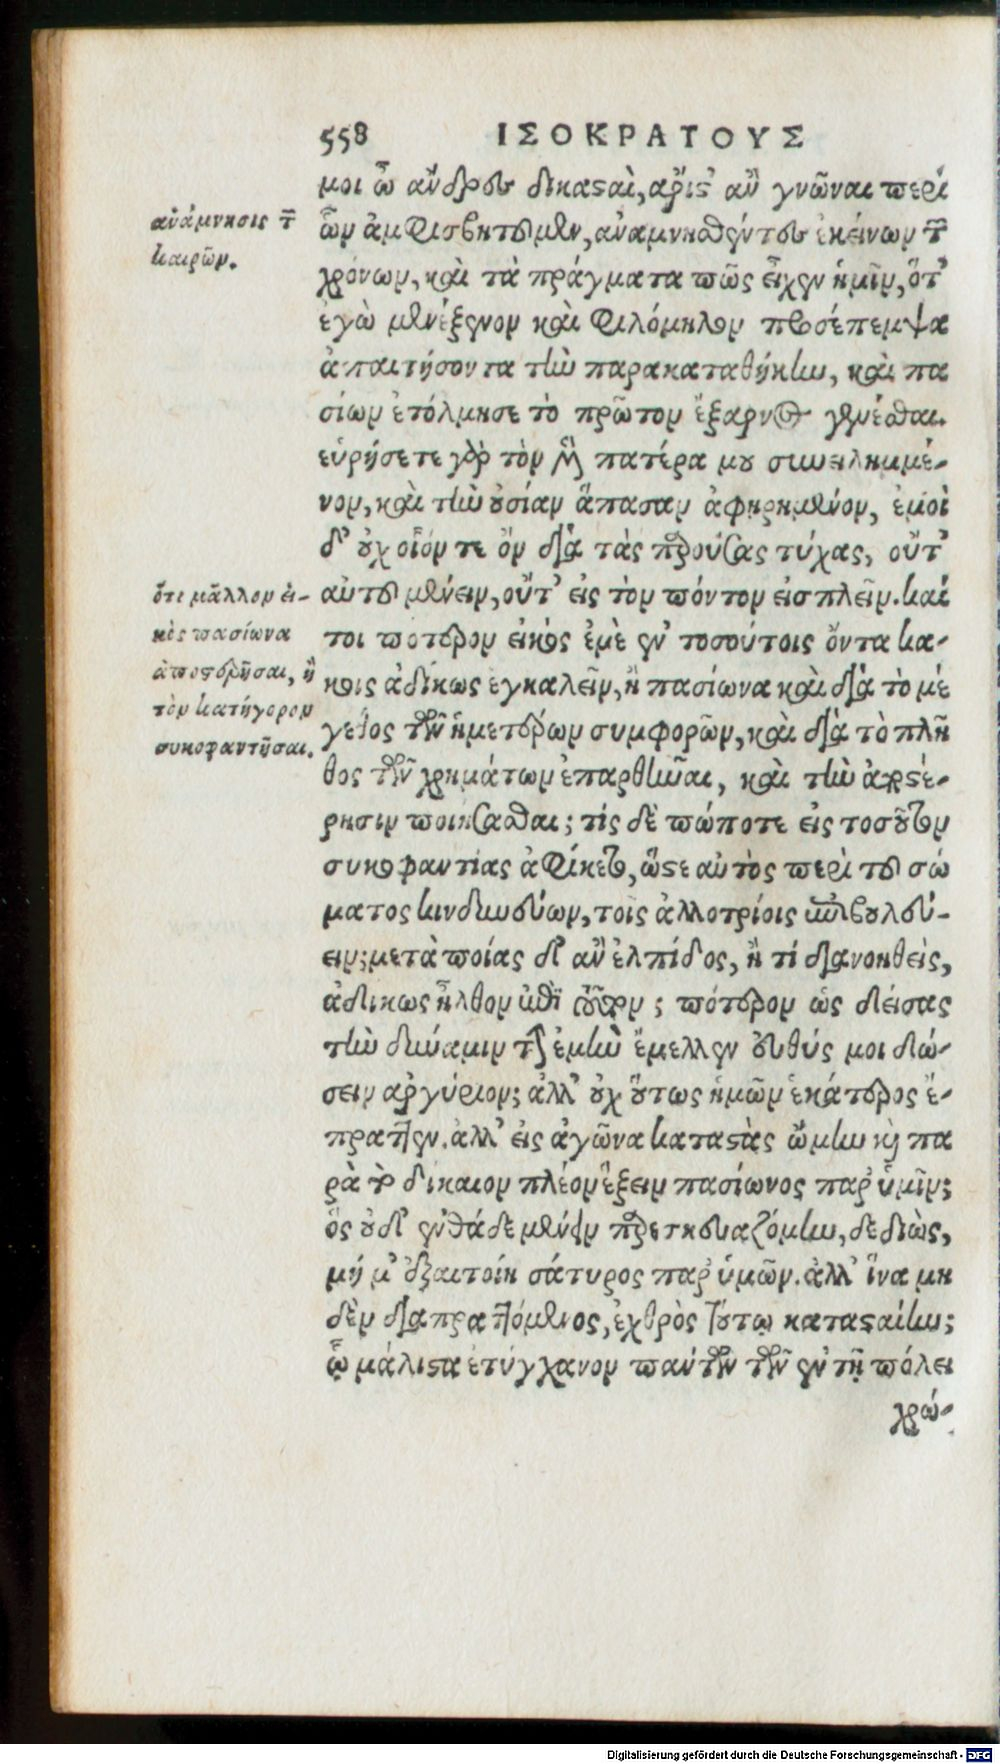 558 ΙΣΟΚΡΑΤΟΥΣ
μοι ὦ ἄνδρες δικασταὶ, ἄριστ' ἂν γνῶναι περὶ
ὧν ἀμφισβητοῦμεν, ἀναμνησθέντες ἐκείνων τῶν
χρόνων, καὶ τὰ πράγματα πῶς εἶχεν ἡμῖν, ὅτ'
ἐγὼ μενέξενον καὶ φιλόμηλον προσέπεμψα
ἀπαιτήσοντα τὴν παρακαταθήκην, καὶ πα
σίων ἐτόλμησε τὸ πρῶτον ἔξαρνος γενέσθαι.
εὑρήσετε γὰρ τὸν μὲν πατέρα μου συνειλημμέ-
νον, καὶ τὴν οὐσίαν ἅπασαν ἀφῃρημένον, ἐμοὶ
δ' οὐχ οἷόν τε ὂν διὰ τὰς παρούσας τύχας, οὔτ'
αὐτοῦ μένειν, οὔτ' εἰς τὸν πόντον εἰσπλεῖν. καί
τοι πότερον εἰκὸς ἐμὲ ἐν τοσούτοις ὄντα κα-
κοῖς ἀδίκως ἐγκαλεῖν, ἢ πασίωνα καὶ διὰ τὸ μέ
γεθος τῶν ἡμετέρων συμφορῶν, καὶ διὰ τὸ πλῆ
θος τῶν χρημάτων ἐπαρθῆναι, καὶ τὴν ἀποστέ-
ρησιν ποιήσασθαι; τίς δὲ πώποτε εἰς τοσοῦτον
συκοφαντίας ἀφίκετο, ὥστε αὐτὸς περὶ τοῦ σώ
ματος κινδυνεύων, τοῖς ἀλλοτρίοις ἐπιβουλεύ-
ειν; μετὰ ποίας δ' ἂν ἐλπίδος, ἢ τί διανοηθεὶς,
ἀδίκως ἦλθον ἐπὶ τοῦτον; πότερον ὡς δείσας
τὴν δύναμιν τὴν ἐμὴν ἔμελλεν εὐθύς μοι δώ-
σειν ἀργύριον; ἀλλ' οὐχ οὕτως ἡμῶν ἑκάτερος ἔ-
πραττεν. ἀλλ' εἰς ἀγῶνα καταστὰς ᾤμην καὶ πα
ρὰ τὸ δίκαιον πλέον ἕξειν πασίωνος παρ' ὑμῖν;
ὃς οὐδ' ἐνθάδε μένειν παρεσκευαζόμην, δεδιὼς,
μή μ' ἐξαιτοίη σάτυρος παρ' ὑμῶν. ἀλλ' ἵνα μη
δὲν διαπραττόμενος, ἐχθρὸς τούτῳ κατασταίην;
ᾧ μάλιστα ἐτύγχανον πάντων τῶν ἐν τῇ πόλει
χρώ-
ἀνάμνησις τῶν
καιρῶν.
ὅτι μᾶλλον εἰ-
κὸς πασίωνα
ἀποστερῆσαι, ἢ
τὸν κατήγορον
συκοφαντῆσαι.
Digitalisierung gefördert durch die Deutsche Forschungsgemeinschaft - DFG